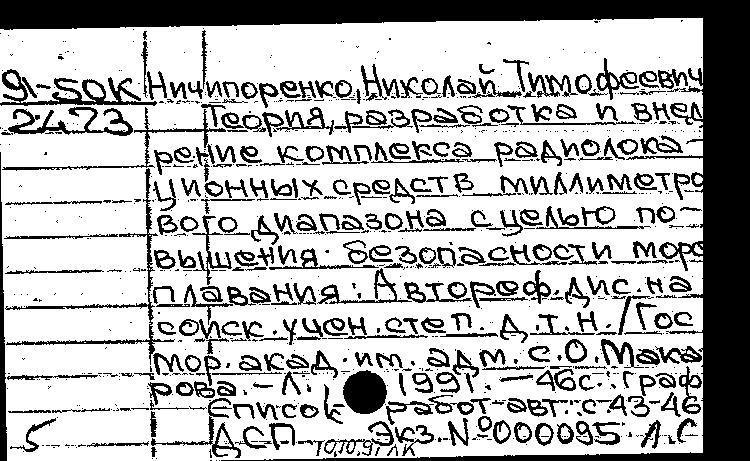 91-50К Ничипоренко, Николай Тимофеевич
2473 Теория, разработка и внед
рение комплекса радиолока-
ционных средств миллиметро
вого диапазона с целью по-
вышения безопасности море
плавания: Автореф. дис. на
соиск. учен. степ. д.т.н. / Гос
мор. акад. им. адм. С.О. Мака
рова. - Л., 1991. - 46с.: граф
Список работ авт.: с 43-46
5 ДСП Экз. № 000095 Л.С
10.10.91 ЛК